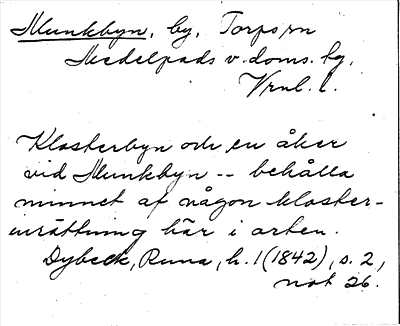 Munkbyn, by, Torps sn
Medelpads v. doms. hg,
Vrnl. l.
Klosterbyn och en åker
vid Munkbyn -- behålla
minnet af någon kloster-
inrättning här i orten.
Dybeck, Runa, h. 1 (1842), s. 2,
not 26.